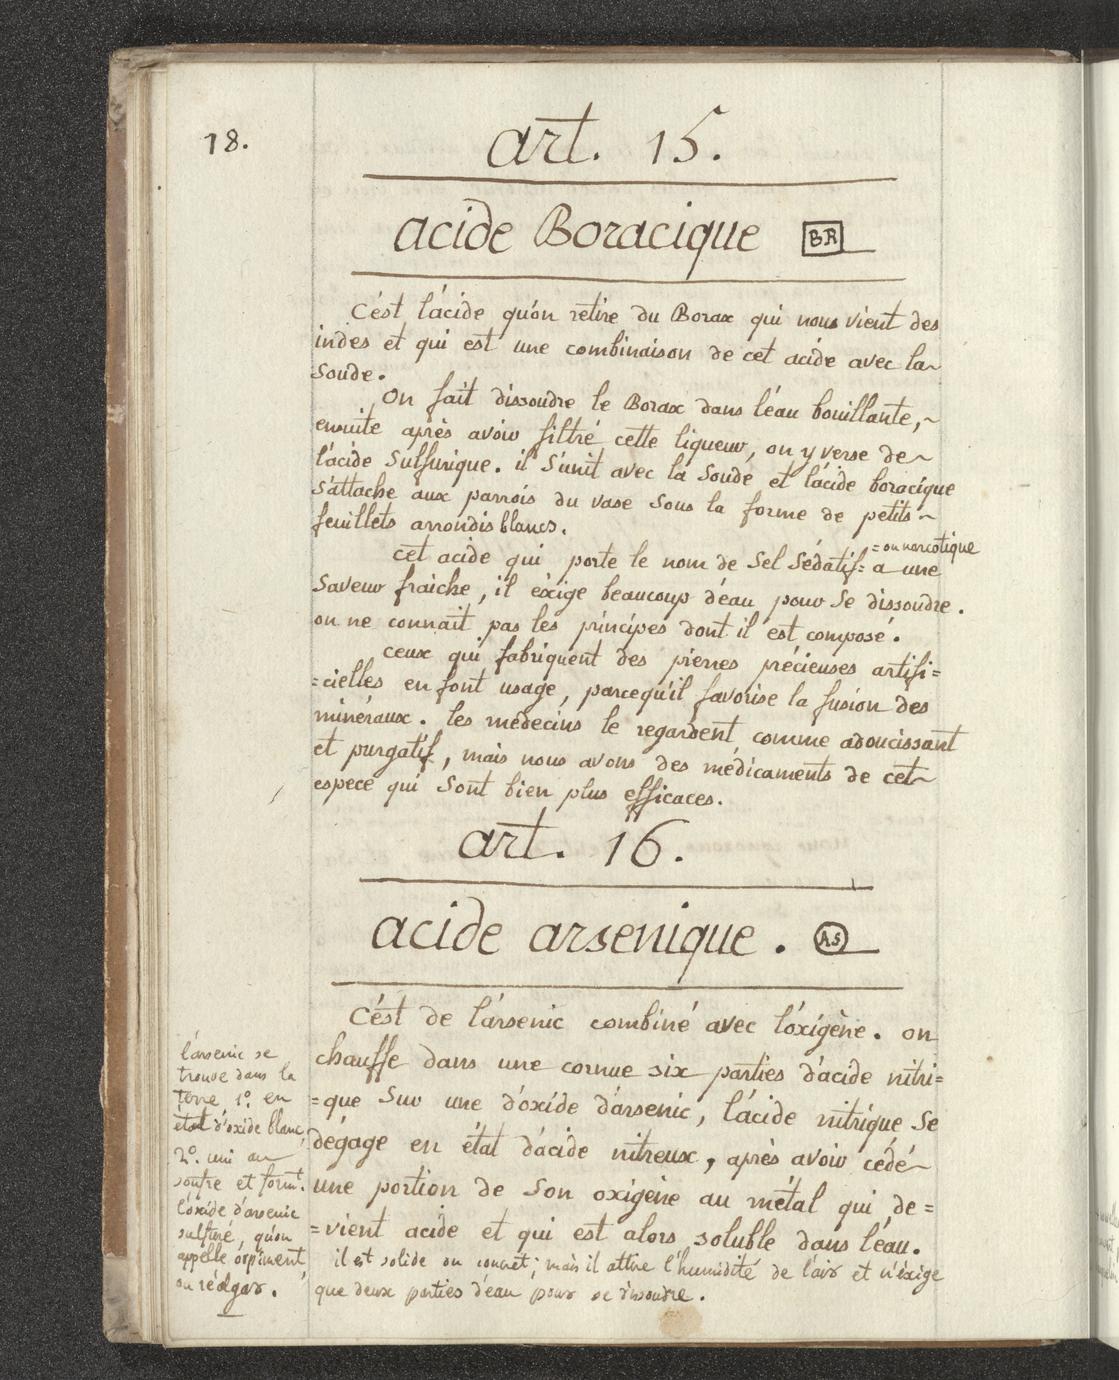 18.
art. 15.
acide Boracique BR
C'est l'acide qu'on retire du Borax qui nous vient des
indes et qui est une combinaison de cet acide avec la
Soude.
On fait dissoudre le Borax dans l'éau bouillante,
ensuite après avoir filtré cette liqueur, on y verse de
l'acide Sulfurique. il S'unit avec la Soude et l'acide boracique
S'attache aux parrois du vase Sous la forme de petits
feuillets arrondis blancs.
= ou narcotique
cet acide qui porte le nom de Sel Sédatif = a une
Saveur fraiche, il éxige beaucoup d'éau pour Se dissoudre.
on ne connait pas les principes dont il est composé.
ceux qui fabriquent des pierres précieuses artifi=
=cielles en font usage, parcequ'il favorise la fusion des
minéraux. les médecins le regardent comme adoucissant
et purgatif, mais nous avons des médicaments de cet
espece qui Sont bien plus efficaces.
art. 16.
acide arsenique. AS
C'est de l'arsenic combiné avec l'oxigène. on
chauffe dans une cornue six parties d'acide nitri=
=que Sur une d'oxide d'arsenic, l'acide nitrique Se
dégage en état d'acide nitreux, après avoir cédé
une portion de Son oxigène au métal qui de=
=vient acide et qui est alors soluble dans l'eau.
il est solide ou concret; mais il attire l'humidité de l'air et n'éxige
que deux parties d'eau pour se dissoudre.
l'arsenic se
trouve dans la
terre 1º. en
état d'oxide blanc,
2º. uni au
soufre et form.
l'oxide d'arsenic
sulfuré, qu'on
appelle orpiment
ou réalgar.